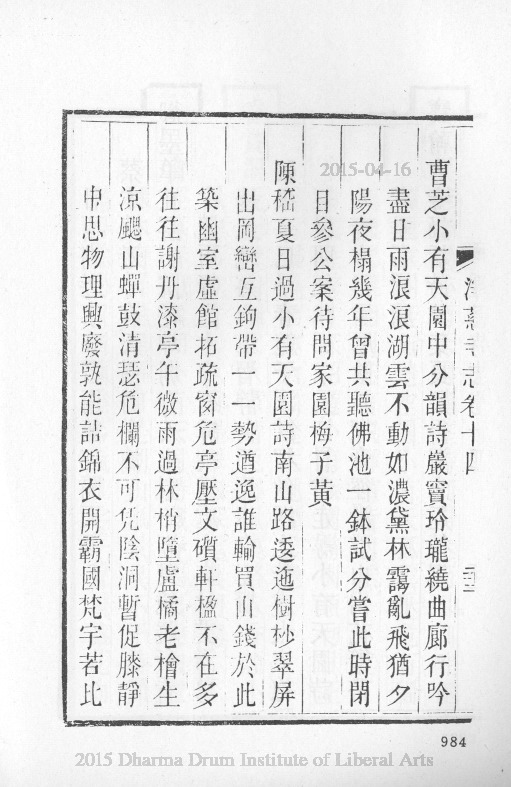 2015-04-16
淨慈寺志卷十四
曹芝小有天園中分韻詩巖竇玲瓏繞曲廊行吟
盡甘雨浪浪湖雲不動如濃黛林靄亂飛猶夕
陽夜榻幾年曾共聽佛池一鉢試分嘗此時閉
目參公案待問家園梅子黃
陳嵇夏日過小有天園詩南山路逶迤樹杪翠屏
出岡巒互鉤帶一一勢遒逸誰輸買山錢於此
築幽室虛館拓疏窗危亭壓文礩軒楹不在多
往往謝丹漆亭午微雨過林梢墮盧橘老檜生
涼颸山蟬鼓清瑟危欄不可凭陰洞暫促膝靜
中思物理興廢孰能詰錦衣開霸國梵宇若比
984
2015 Dharma Drum Institute of Liberal Arts